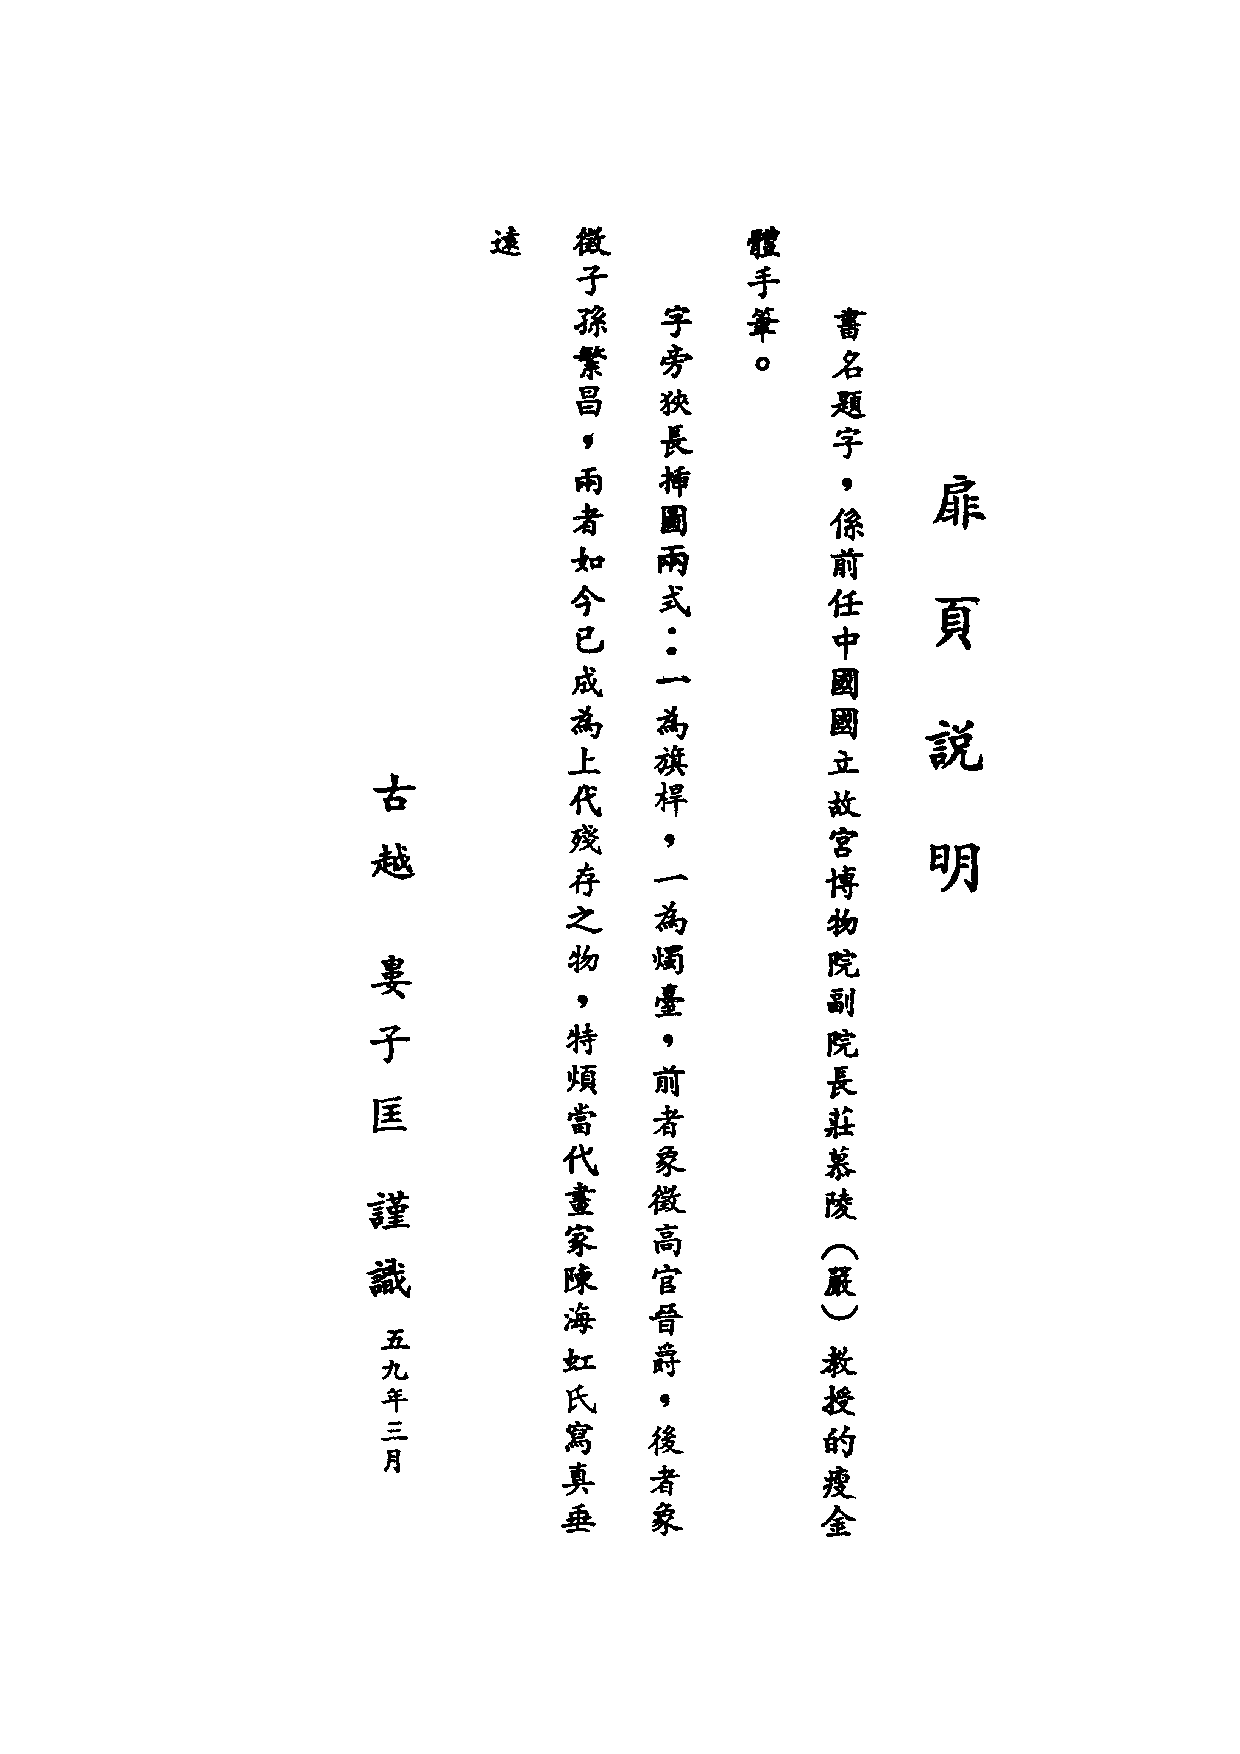 扉頁說明
書名題字，係前任中國國立故宮博物院副院長莊慕陵（嚴）教授的瘦金
體手筆。
字旁狹長揷圖兩式：一為旗桿，一為燭臺，前者象徵高官晉爵，後者象
徵子孫繁昌，兩者如今已成為上代殘存之物，特煩當代畫家陳海虹氏寫真垂
遠
古越 婁子匡 謹識 五九年三月